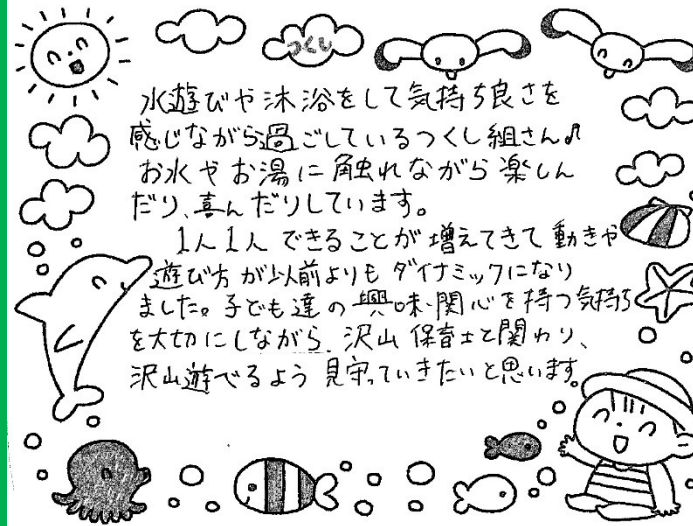 つくし
水遊びや沐浴をして気持ち良さを
感じながら過ごしているつくし組さん♪
お水やお湯に触れながら楽しん
だり、喜んだりしています。
1人1人できることが増えてきて動きや
遊び方が以前よりもダイナミックになり
ました。子ども達の興味・関心を持つ気持ち
を大切にしながら、沢山保育士と関わり、
沢山遊べるよう見守っていきたいと思います。